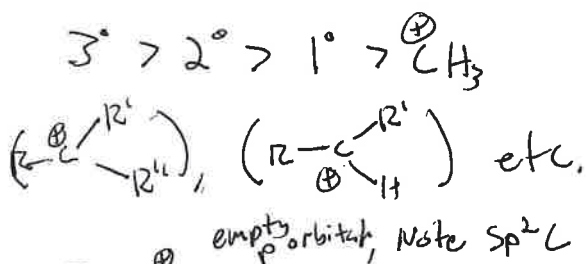 3° > 2° > 1° > ⊕CH₃
(R–C⊕ R' R''), (R–C⊕ R' H) etc.
empty p orbital, Note sp² C
⊕